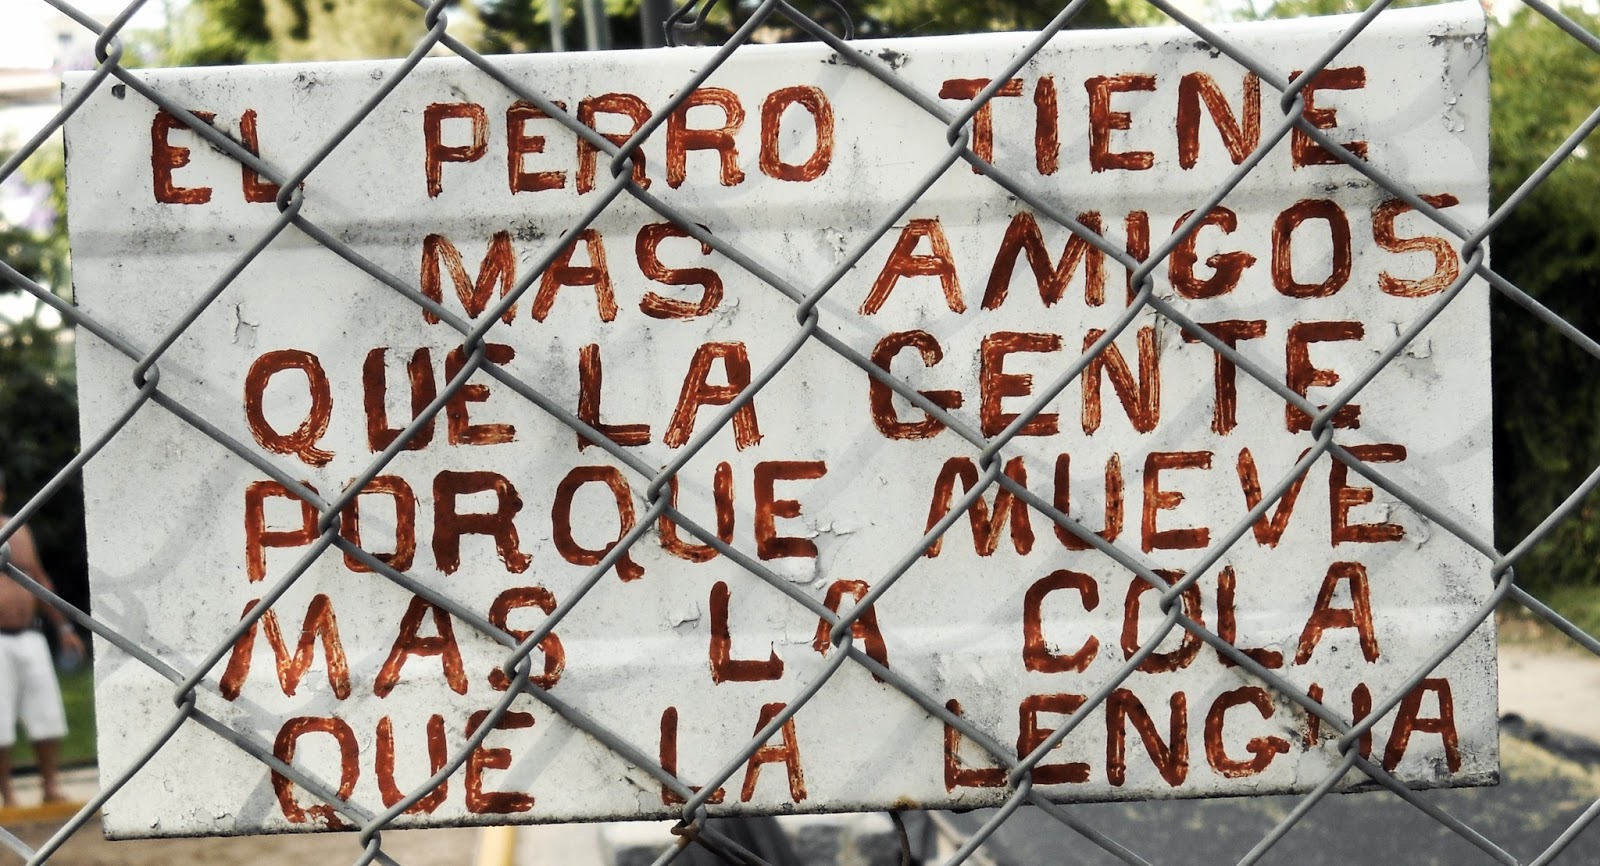 EL PERRO TIENE
MAS AMIGOS
QUE LA GENTE
PORQUE MUEVE
MAS LA COLA
QUE LA LENGUA